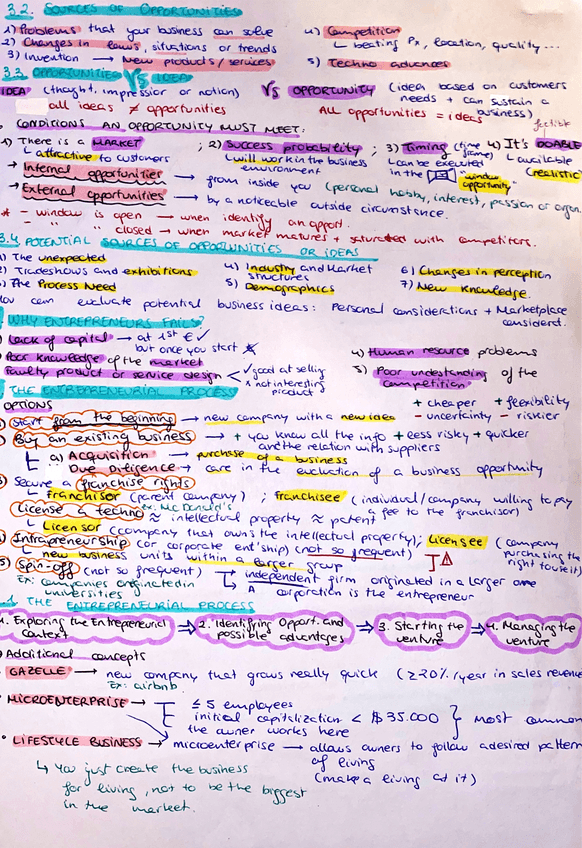 3.2. SOURCES OF OPPORTUNITIES
1) Problems that your business can solve
2) Changes in laws, situations or trends
3) Invention → New products/services
4) Competition
↳ beating Px, location, quality...
5) Techno advances
3.3 OPPORTUNITIES VS IDEA
IDEA (thoght, impression or notion) VS OPPORTUNITY (idea based on customers
needs + can sustain a
business)
all ideas ≠ opportunities
ALL opportunities = ideas
CONDITIONS AN OPPORTUNITY MUST MEET:
1) There is a MARKET
↳ attractive to customers
; 2) Success probability
↳ will work in the business
environment
; 3) Timing (time frame)
↳ can be executed
in the "window opportunity"
4) It's DOABLE
↳ available
(realistic)
→ Internal opportunities → grom inside you (personal hobby, interest, passion or organ.
→ External opportunities → by a noticeable outside circumstance.
* - window is open → when identify an opport.
" " closed → when market matures + saturated with competitors.
3.4 POTENTIAL SOURCES OF OPPORTUNITIES OR IDEAS
1) The unexpected
2) Tradeshows and exhibitions
3) The Process Need
4) Industry and Market
structures
5) Demographics
6) Changes in perception
7) New Knowledge.
You can evaluate potential business ideas: Personal considerations + Marketplace
considerat.
WHY ENTREPRENEURS FAILS?
Lack of capital → at 1st € ✓
but once you start ✗
Poor knowledge of the market
Faulty product or service design
✓ good at selling
x not interesting
product
4) Human resource problems
5) Poor undestanding of the
competition
THE ENTREPRENEURIAL PROCESS
OPTIONS
+ cheaper + flexibility
- uncertainty - riskier
1) Start from the beginning → new company with a new idea
2) Buy an existing business → + you know all the info + less risky + quicker
and the relation with suppliers
a) Acquisition → purchase of a business
Due diligence → care in the evaluation of a business opportunity
3) Secure a franchise rights
↳ franchisor (parent company) ; franchisee (individual/company willing to pay
a fee to the franchisor)
ex. Mc Donald's
License a techno ≈ intellectual property ≈ patent
↳ Licensor (company that owns the intellectual property); Licensee (company
purchasing the
right to use it)
4) Intrapreneurship (or corporate ent'ship) (not so frequent)
↳ new business units within a larger group
5) Spin-off (not so frequent)
Ex: companies originated in
universities
independent firm originated in a larger one
A corporation is the entrepreneur
THE ENTREPRENEURIAL PROCESS
1. Exploring the Entrepreneurial
context
⇒ 2. Identifying Opport. and
possible advantges
⇒ 3. Starting the
venture
⇒ 4. Managing the
venture
Additional concepts
GAZELLE → new company that grows really quick (≥20%/year in sales revenue
Ex: airbnb
MICROENTERPRISE → ≤ 5 employees
initial capitalization < $ 35.000
the owner works here
} most common
LIFESTYLE BUSINESS → microenterprise → allows owners to follow a desired pattern
of living
(make a living at it)
↳ You just create the business
for living, not to be the biggest
in the market.